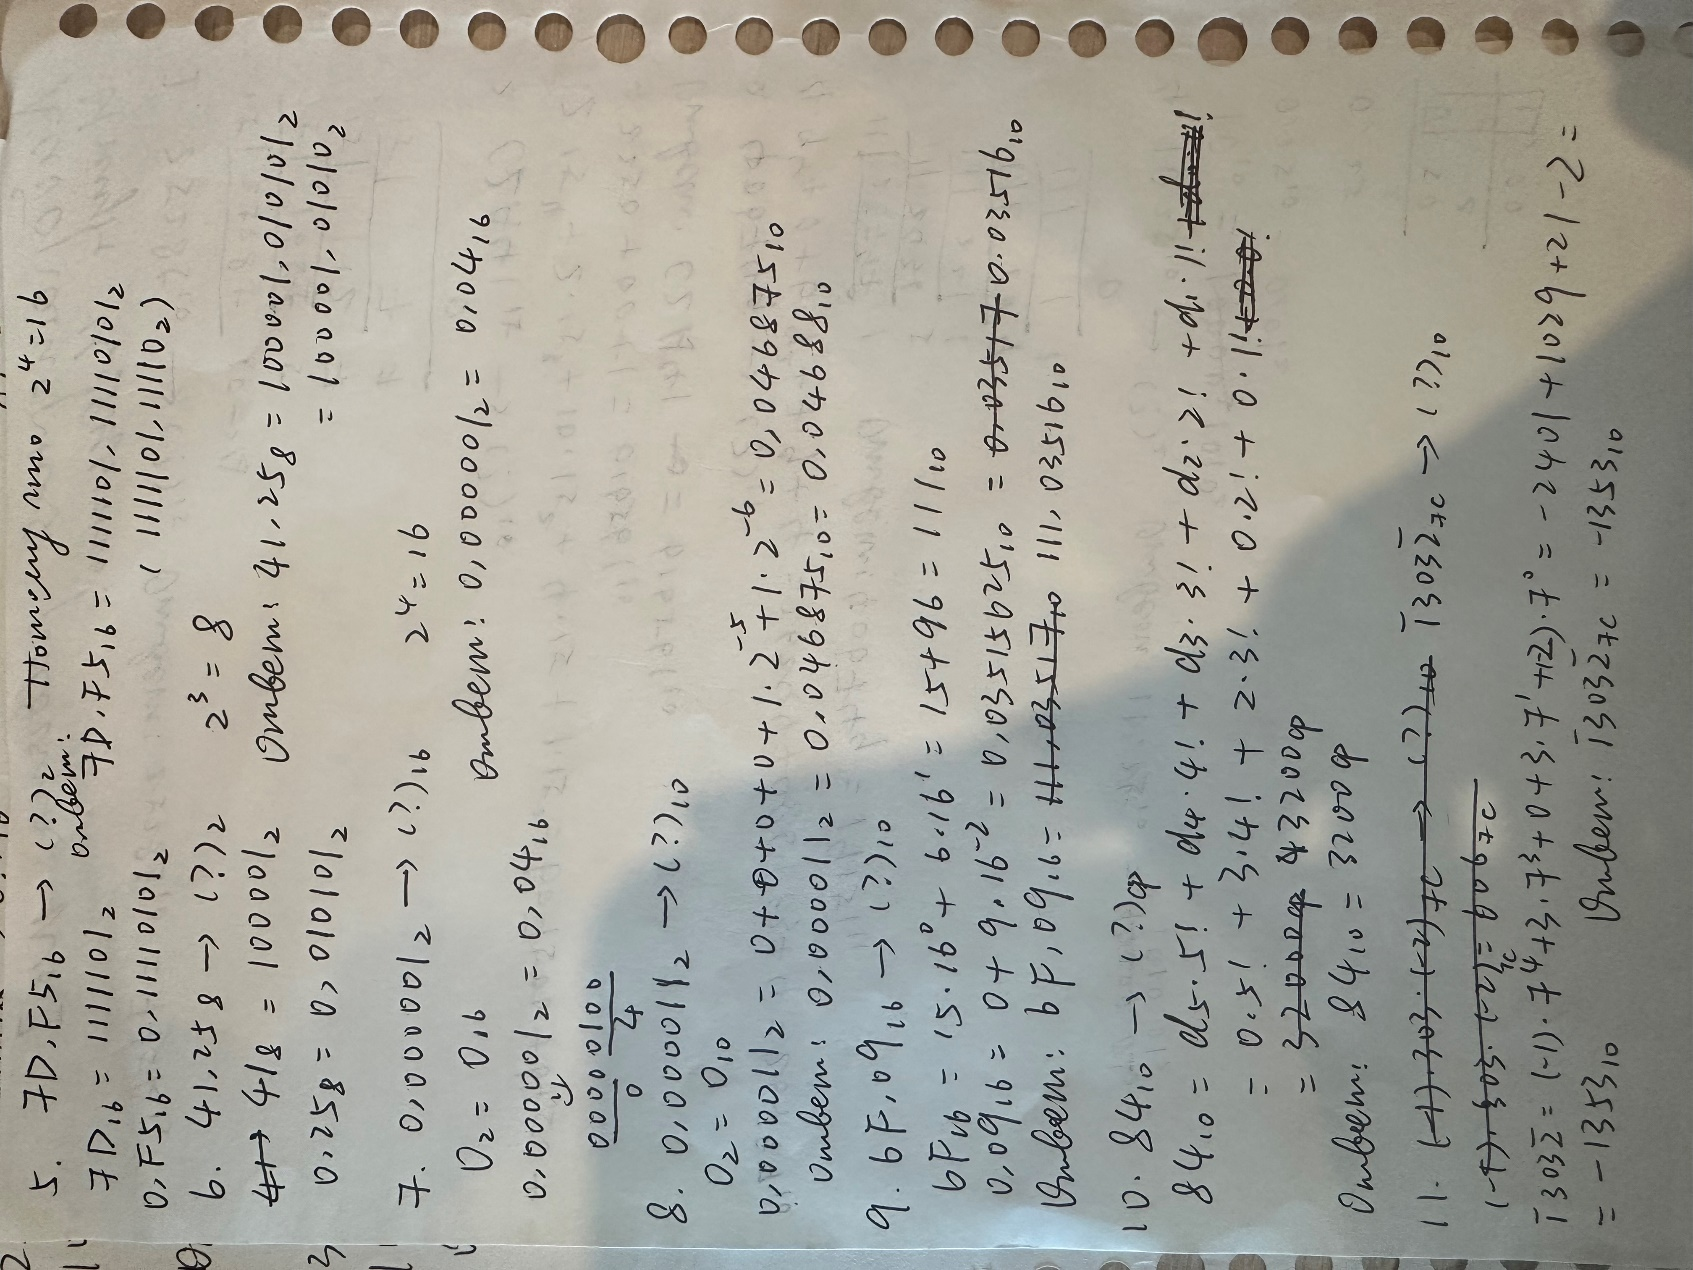 5. 7D,F5₁₆ → (?)₂ Потому что 2⁴=16
Ответ:
7D₁₆ = 1111101₂ 7D,F5₁₆ = 1111101,11110101₂
0,F5₁₆ = 0,11110101₂ (1111101,11110₂)
6. 41,25₈ → (?)₂ 2³=8
41₈ = 100001₂ Ответ: 41,25₈ = 100001,010101₂
0,25₈ = 0,010101₂ = 100001,01010₂
7. 0,000001₂ → (?)₁₆ 2⁴=16
0₂ = 0₁₆ Ответ: 0,000001₂ = 0,04₁₆
0,000001₂ = 0,04₁₆
0000 0100
0 4
8. 0,000011₂ → (?)₁₀
0₂ = 0₁₀
0,000011₂ = 0+0+0+0+1·2⁻⁵+1·2⁻⁶ = 0,046875₁₀
Ответ: 0,000011₂ = 0,046875₁₀ = 0,04688₁₀
9. 6F,09₁₆ → (?)₁₀
6F₁₆ = 15·16⁰ + 6·16¹ = 15+96 = 111₁₀
0,09₁₆ = 0+9·16⁻² = 0,03515625₁₀ = 0,03517 0.03516₁₀
Ответ: 6F,09₁₆ = 111,03517₁₀ 111,03516₁₀
10. 84₁₀ → (?)ф
84₁₀ = d5·5! + d4·4! + d3·3! + d2·2! + d1·1!
= 0·5! + 3·4! + 2·3! + 0·2! + 0·1! + 0·0!
= 32000ф 43200ф
Ответ: 84₁₀ = 3200ф
11. (-1)·303·(-2)₇c → (?)₁₀ 1̅303̅2̅₇c → (?)₁₀
(-1)·303·(-2)₇c = 606₇c
1̅303̅2̅ = (-1)·7⁴+3·7³+0+3·7¹+(-2)·7⁰ = -2401+1029+21-2 =
= -1353₁₀ Ответ: 1̅303̅2̅₇c = -1353₁₀